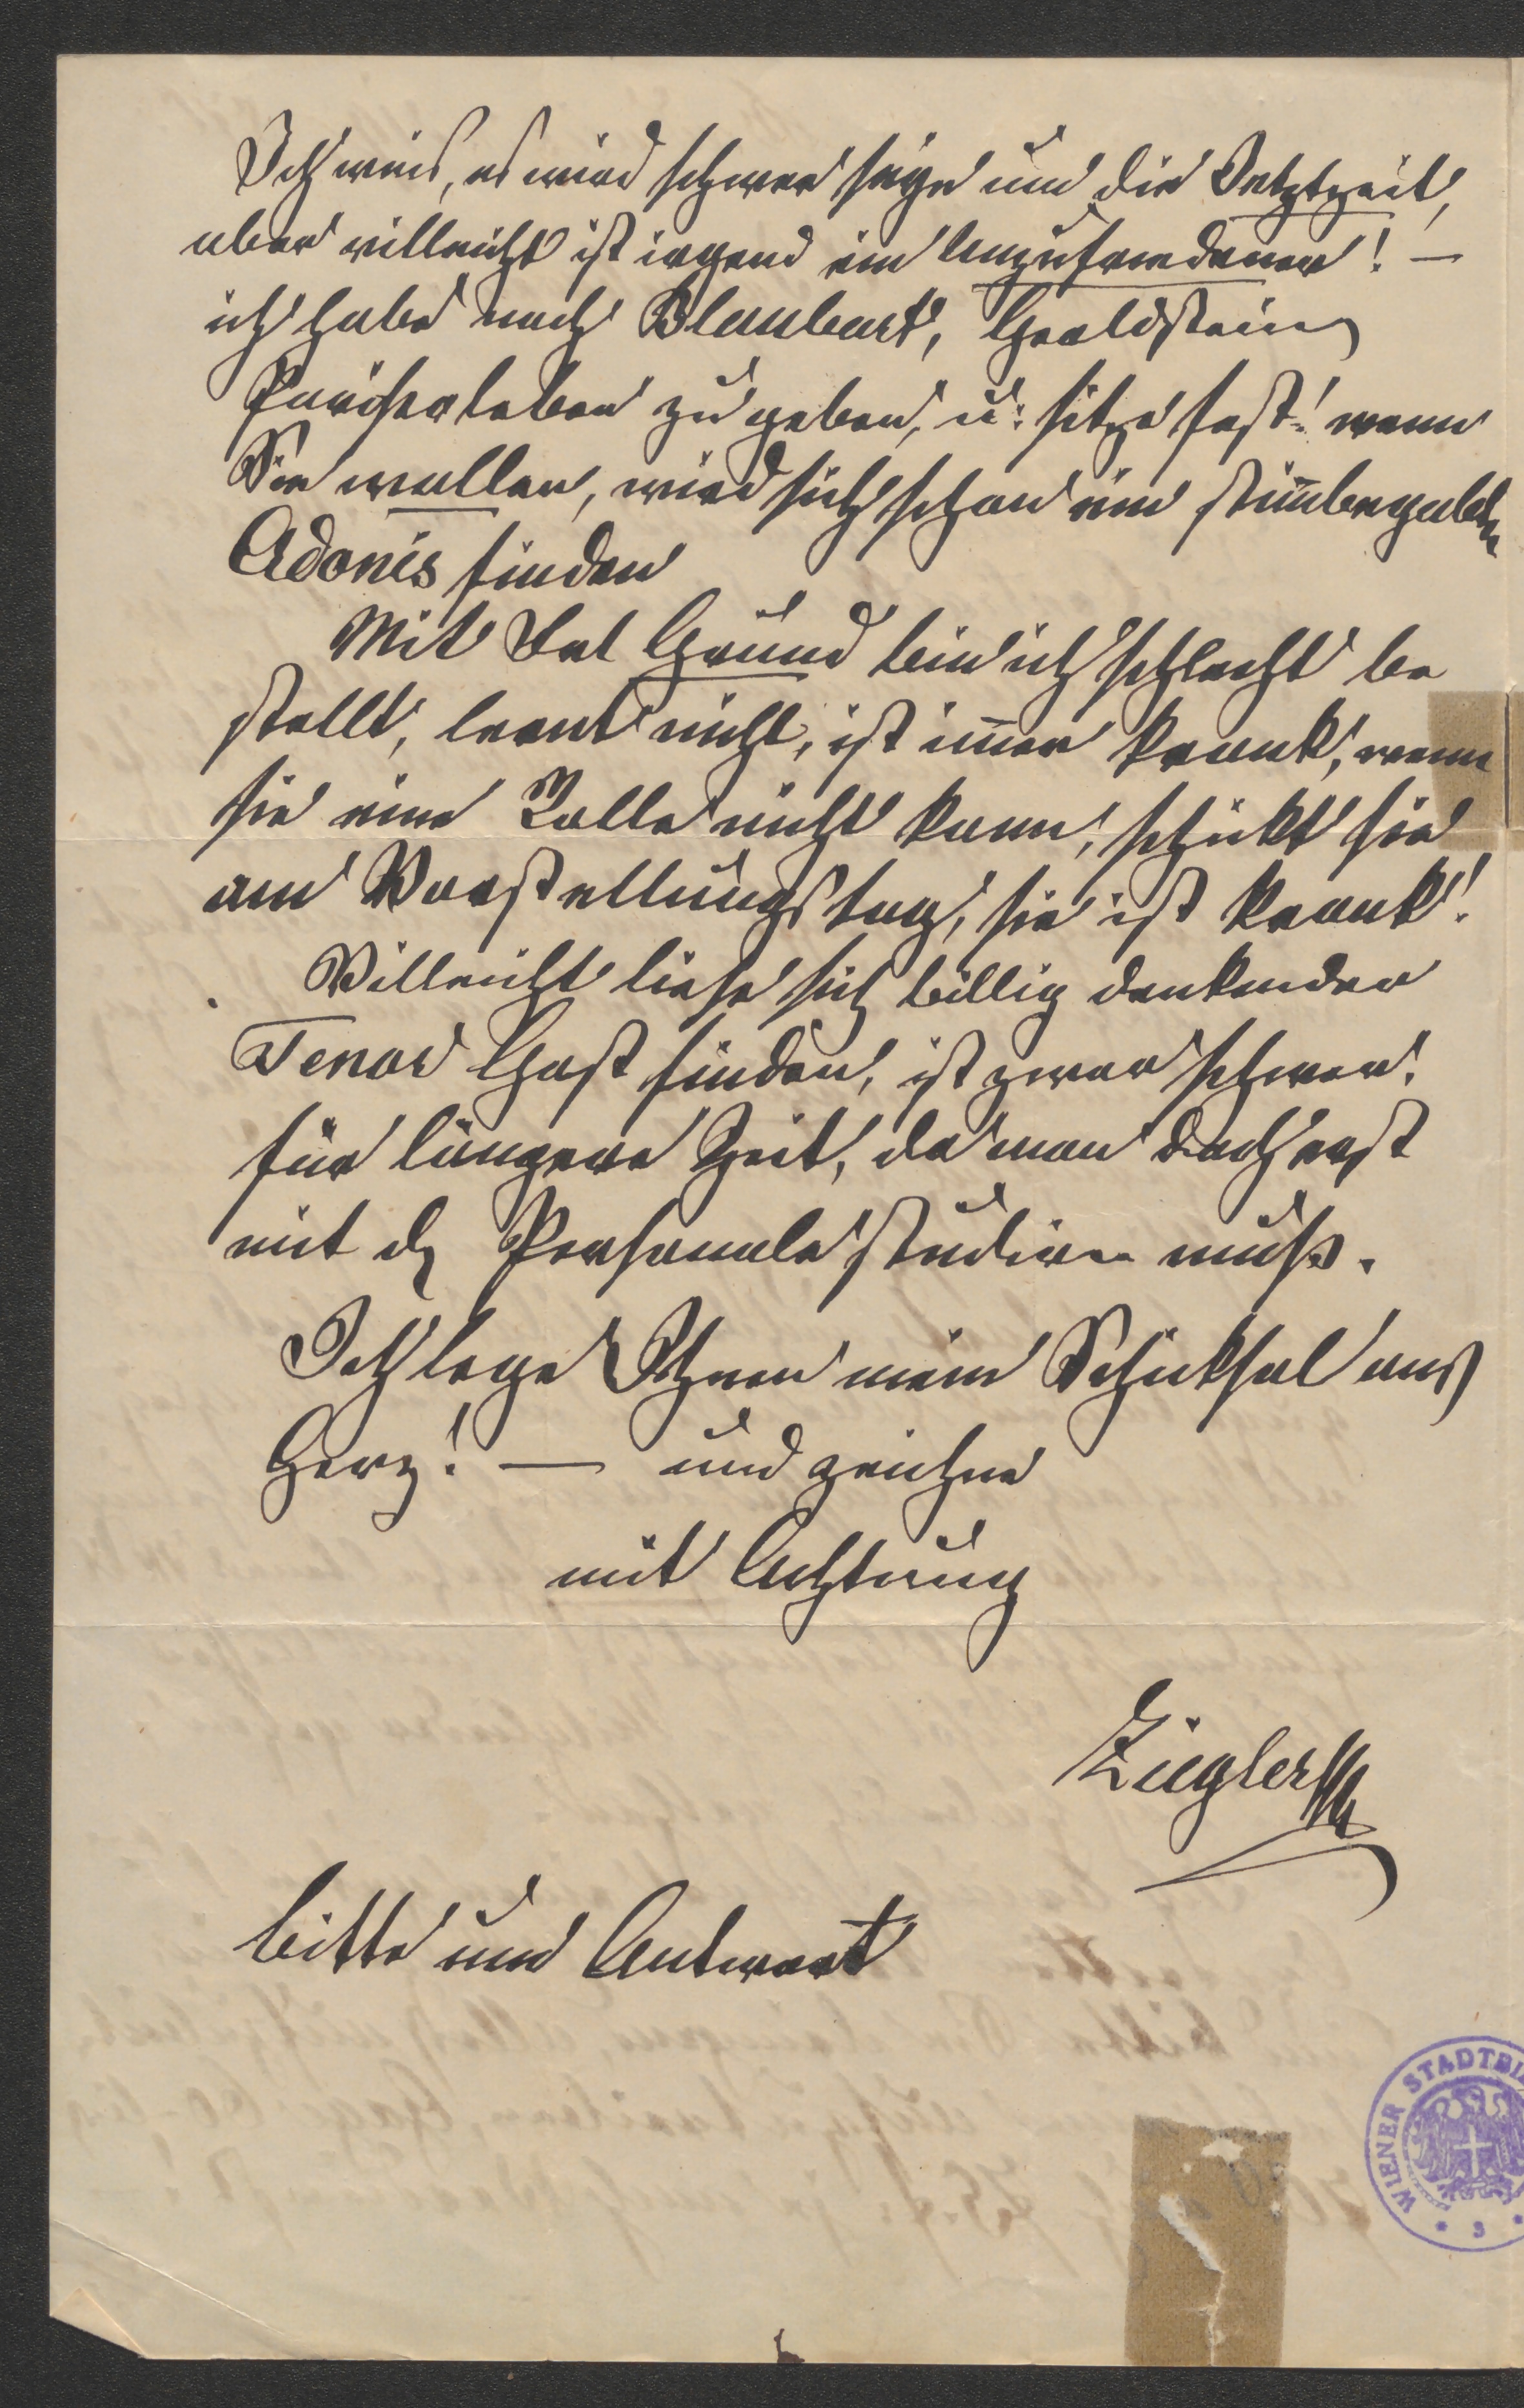 Ich weis, es wird schwer seyn um die Jetztzeit,
aber villeicht ist irgend ein Unzufriedener! —
ich habe noch Blaubart, Geroldstein
Pariserleben zu geben, u: sitze fest! wenn
Sie wollen, wird sich schon ein stim̅begabter
Adonis finden
Mit Frl Grund bin ich schlecht be
stellt, lernt nicht, ist im̅er krank, wenn
sie eine Rolle nicht kann, schickt sie
am Vorstellungstag, sie ist krank!
Villeicht liese sich billig denkender
Tenor Gast finden, ist zwar schwer,
für längere Zeit, da man doch erst
mit d Personale studiren muß.
Ich lege Ihnen mein Schicksal ans
Herz! — und zeichne
mit Achtung
Ziegler
bitte um Antwort
WIENER STADTBI